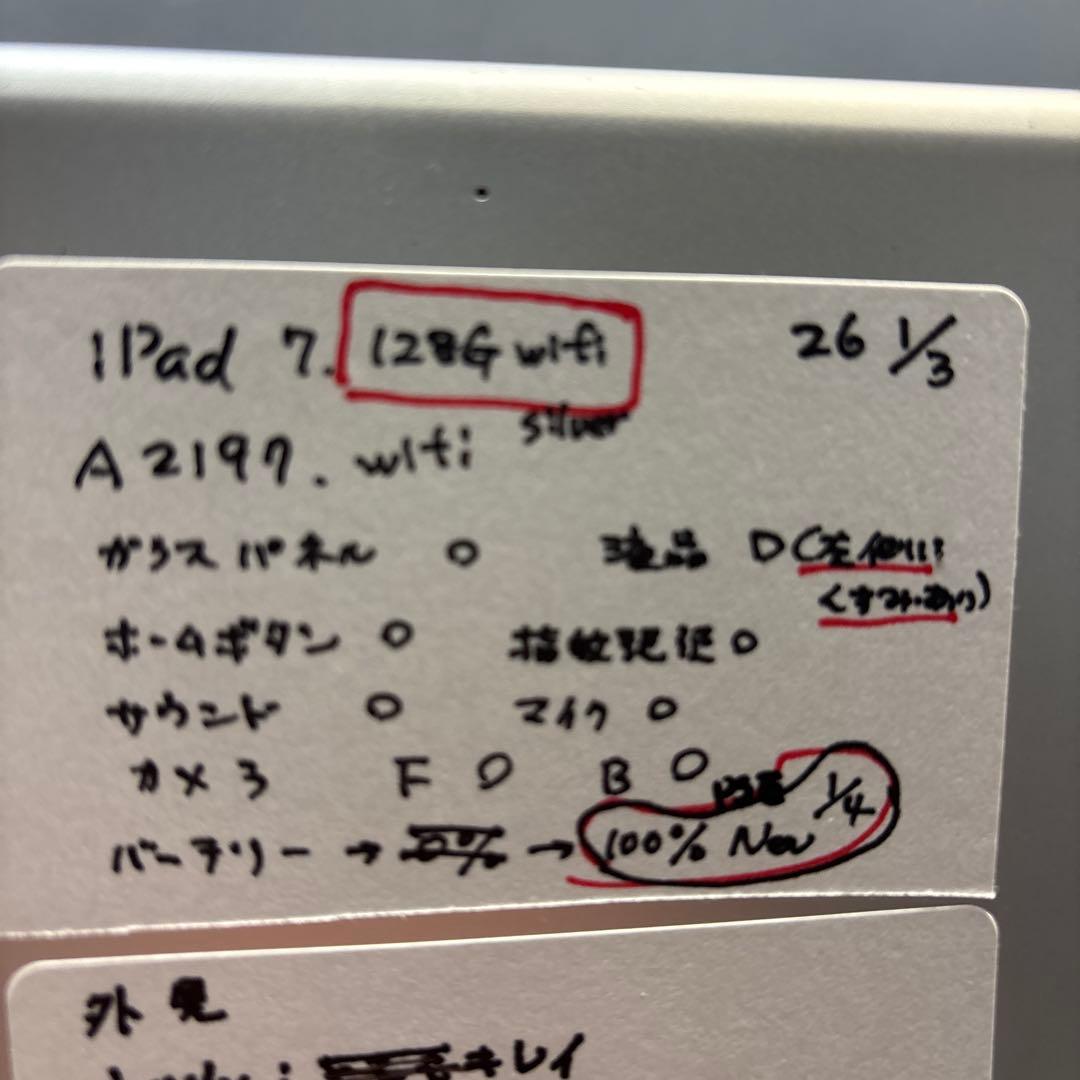 iPad 7. 128G wifi 26 1/3
A2197. wifi silver
ガラスパネル ○ 液晶 D(左側に
くすみあり)
ホームボタン ○ 指紋認証 ○
サウンド ○ マイク ○
カメラ F ○ B ○
バーテリー → → 100% New 1/4
外見
キレイ